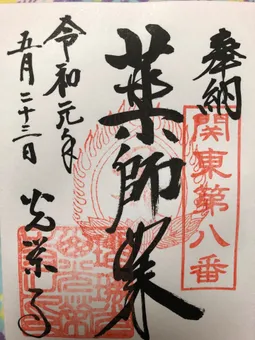 奉納
関東第八番
薬師如来
令和元年
五月二十三日
光栄寺